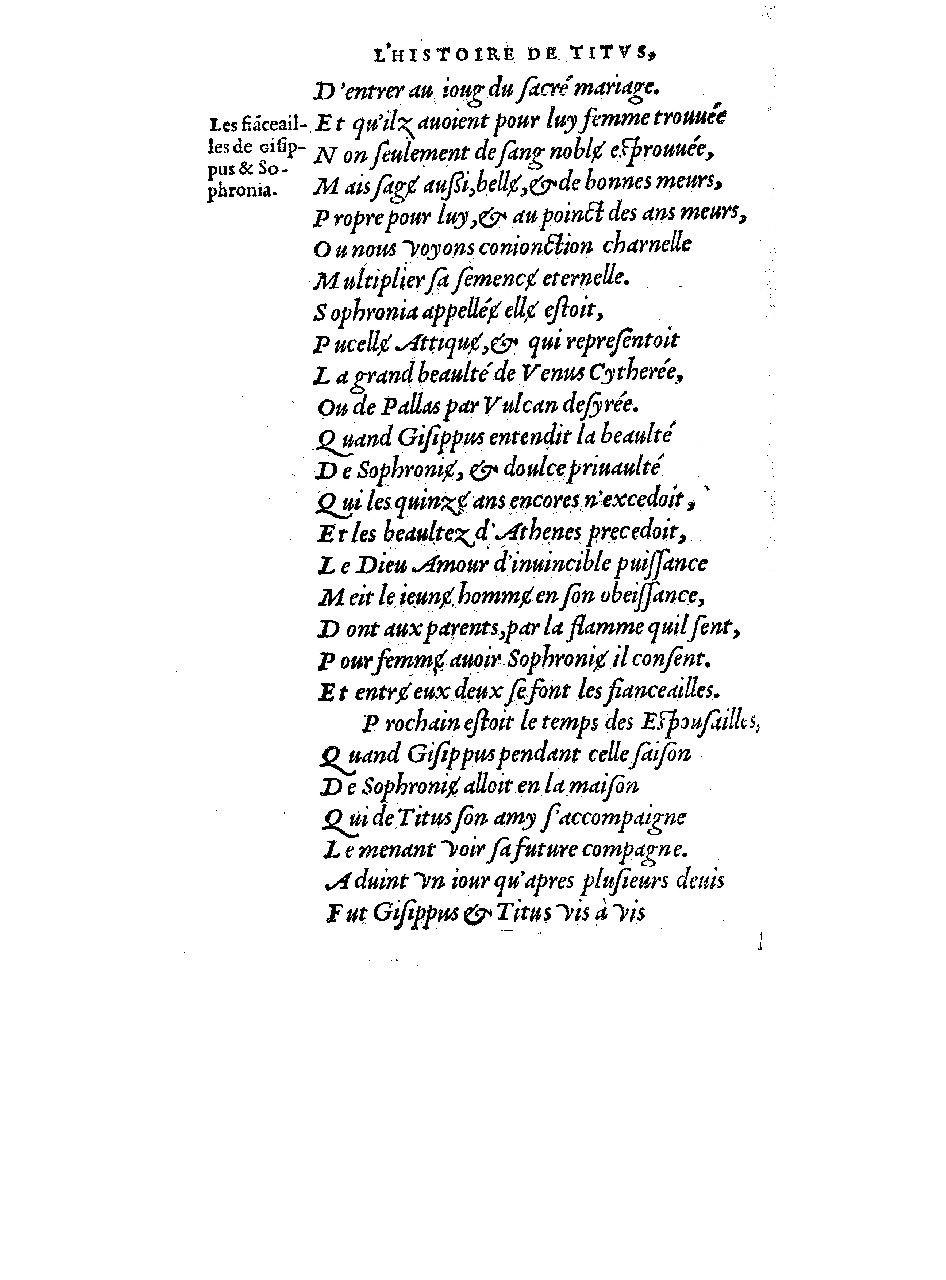 L'HISTOIRE DE TITVS,
D'entrer au ioug du ſacré mariage.
Les fiãceail-
les de Giſip-
pus & So-
phronia.
Et qu'ilz auoient pour luy femme trouuée
Non ſeulement de ſang noblɇ eſprouuée,
Mais ſagɇ auſſi, bellɇ, & de bonnes meurs,
Propre pour luy, & au poinct des ans meurs,
Ou nous voyons conionction charnelle
Multiplier ſa ſemencɇ eternelle.
Sophronia appelléɇ ellɇ eſtoit,
Pucellɇ Attiquɇ, & qui repreſentoit
La grand beaulté de Venus Cytherée,
Ou de Pallas par Vulcan deſyrée.
Quand Giſippus entendit la beaulté
De Sophroniɇ, & doulce priuaulté
Qui les quinzɇ ans encores n'excedoit,
Et les beaultez d'Athenes precedoit,
Le Dieu Amour d'inuincible puiſſance
Meit le ieunɇ hommɇ en ſon obeiſſance,
Dont aux parents, par la flamme quil ſent,
Pour femmɇ auoir Sophroniɇ il conſent.
Et entrɇ eux deux ſe font les fianceailles.
Prochain eſtoit le temps des Eſpouſailles,
Quand Giſippus pendant celle ſaiſon
De Sophroniɇ alloit en la maiſon
Qui de Titus ſon amy ſ'accompaigne
Le menant voir ſa future compagne.
Aduint vn iour qu'apres pluſieurs deuis
Fut Giſippus & Titus vis à vis